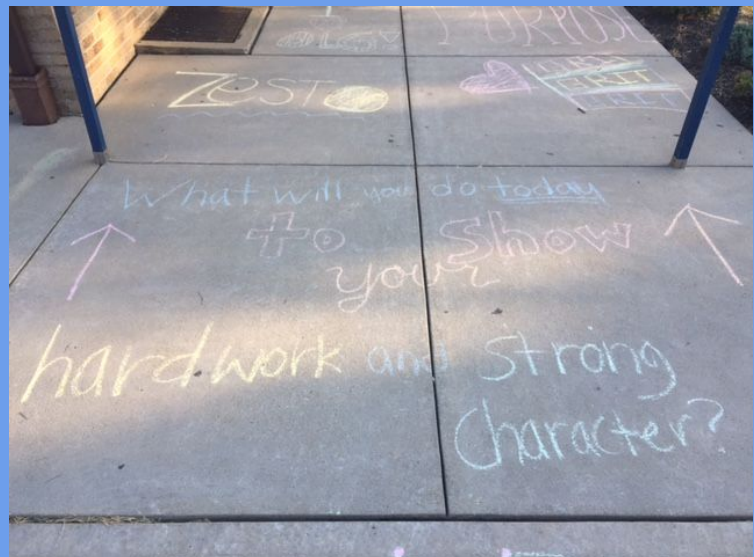 PURPOSE
Zest
GRIT
GRIT
What will you do today
to Show
your
hardwork and Strong
Character?